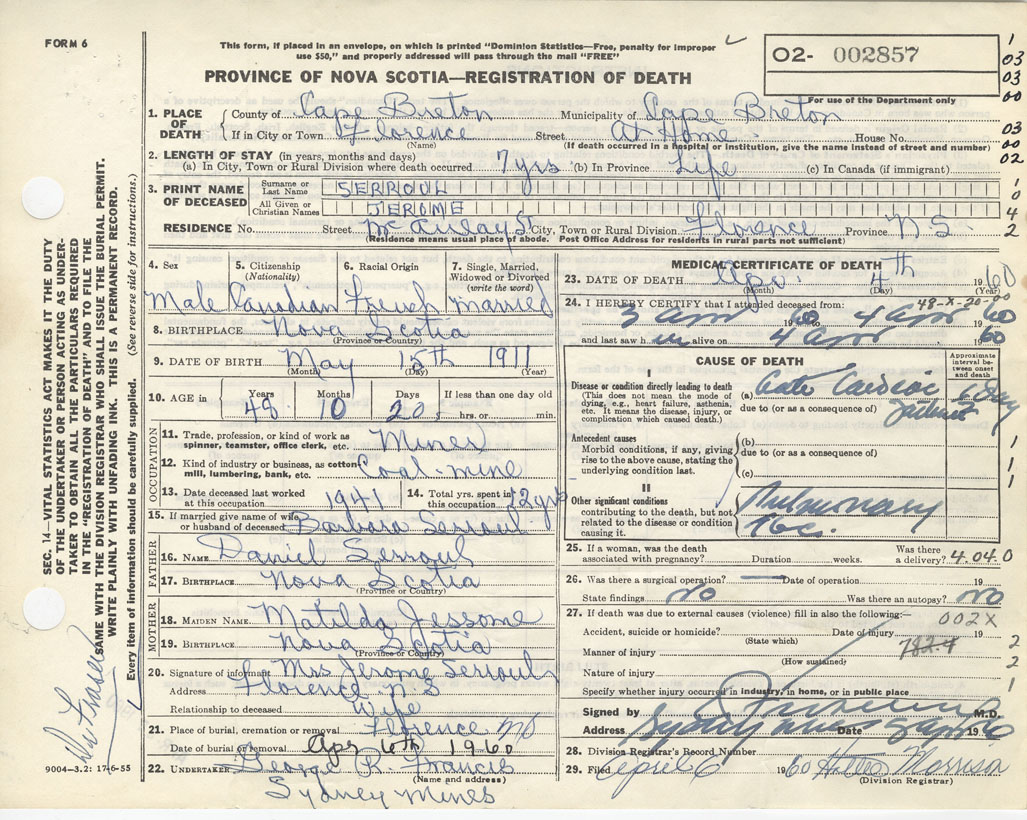 FORM 6
This form, if placed in an envelope, on which is printed "Dominion Statistics—Free, penalty for improper
use $50," and properly addressed will pass through the mail "FREE"
PROVINCE OF NOVA SCOTIA—REGISTRATION OF DEATH
02- 002857
For use of the Department only
1
03
03
00
03
00
02
1
0
4
2
1. PLACE OF DEATH
County of Cape Breton Municipality of Cape Breton
If in City or Town Florence Street At Home House No.
(Name) (If death occurred in a hospital or institution, give the name instead of street and number)
2. LENGTH OF STAY (in years, months and days)
(a) In City, Town or Rural Division where death occurred 7 yrs (b) In Province Life (c) In Canada (if immigrant)
3. PRINT NAME OF DECEASED
Surname or Last Name SERROUL
All Given or Christian Names JEROME
RESIDENCE No. Street McAulay St City, Town or Rural Division Florence Province N.S.
(Residence means usual place of abode. Post Office Address for residents in rural parts not sufficient)
4. Sex 5. Citizenship (Nationality) 6. Racial Origin 7. Single, Married, Widowed or Divorced (write the word)
Male Canadian French Married
8. BIRTHPLACE Nova Scotia
(Province or Country)
9. DATE OF BIRTH May 15th 1911
(Month) (Day) (Year)
10. AGE in Years Months Days If less than one day old
48 10 20 hrs. or min.
OCCUPATION
11. Trade, profession, or kind of work as spinner, teamster, office clerk, etc. Miner
12. Kind of industry or business, as cotton mill, lumbering, bank, etc. Coal-mine
13. Date deceased last worked at this occupation 1941
14. Total yrs. spent in this occupation 12 yrs
15. If married give name of wife or husband of deceased Barbara Serroul
FATHER
16. NAME Daniel Serroul
17. BIRTHPLACE Nova Scotia
(Province or Country)
MOTHER
18. MAIDEN NAME Matilda Jessome
19. BIRTHPLACE Nova Scotia
(Province or Country)
20. Signature of informant Mrs Jerome Serroul
Address Florence N S
Relationship to deceased Wife
21. Place of burial, cremation or removal Florence N S
Date of burial or removal Apr 6th 1960
22. UNDERTAKER George R. Francis
(Name and address)
Sydney Mines
MEDICAL CERTIFICATE OF DEATH
23. DATE OF DEATH Apr. 4th 1960
(Month) (Day) (Year)
48-X-20-00
24. I HEREBY CERTIFY that I attended deceased from:
3 Apr 1960 4 Apr 1960
and last saw h im alive on 4 Apr 1960
CAUSE OF DEATH
Approximate interval between onset and death
I
Disease or condition directly leading to death
(This does not mean the mode of dying, e.g., heart failure, asthenia, etc. It means the disease, injury, or complication which caused death.)
(a) Acute Cardiac failure 1 Day
due to (or as a consequence of)
Antecedent causes
Morbid conditions, if any, giving rise to the above cause, stating the underlying condition last.
(b)
due to (or as a consequence of)
(c)
II
Other significant conditions
contributing to the death, but not related to the disease or condition causing it.
Pulmonary Tbc.
1
1
1
25. If a woman, was the death associated with pregnancy? Duration weeks. Was there a delivery?
4.04.0
26. Was there a surgical operation? — Date of operation 19
State findings No Was there an autopsy? No
27. If death was due to external causes (violence) fill in also the following:—
002X
Accident, suicide or homicide? Date of injury 19
(State which)
782.4
Manner of injury
(How sustained)
Nature of injury
Specify whether injury occurred in industry, in home, or in public place
2
2
1
Signed by M.D.
Address Sydney Mines Date 1960
28. Division Registrar's Record Number
29. Filed April 6 1960 Morrison
(Division Registrar)
SEC. 14—VITAL STATISTICS ACT MAKES IT THE DUTY
OF THE UNDERTAKER OR PERSON ACTING AS UNDER-
TAKER TO OBTAIN ALL THE PARTICULARS REQUIRED
IN THE "REGISTRATION OF DEATH" AND TO FILE THE
SAME WITH THE DIVISION REGISTRAR WHO SHALL ISSUE THE BURIAL PERMIT.
WRITE PLAINLY WITH UNFADING INK. THIS IS A PERMANENT RECORD.
Every item of information should be carefully supplied. (See reverse side for instructions.)
9004—3.2: 17-6-55